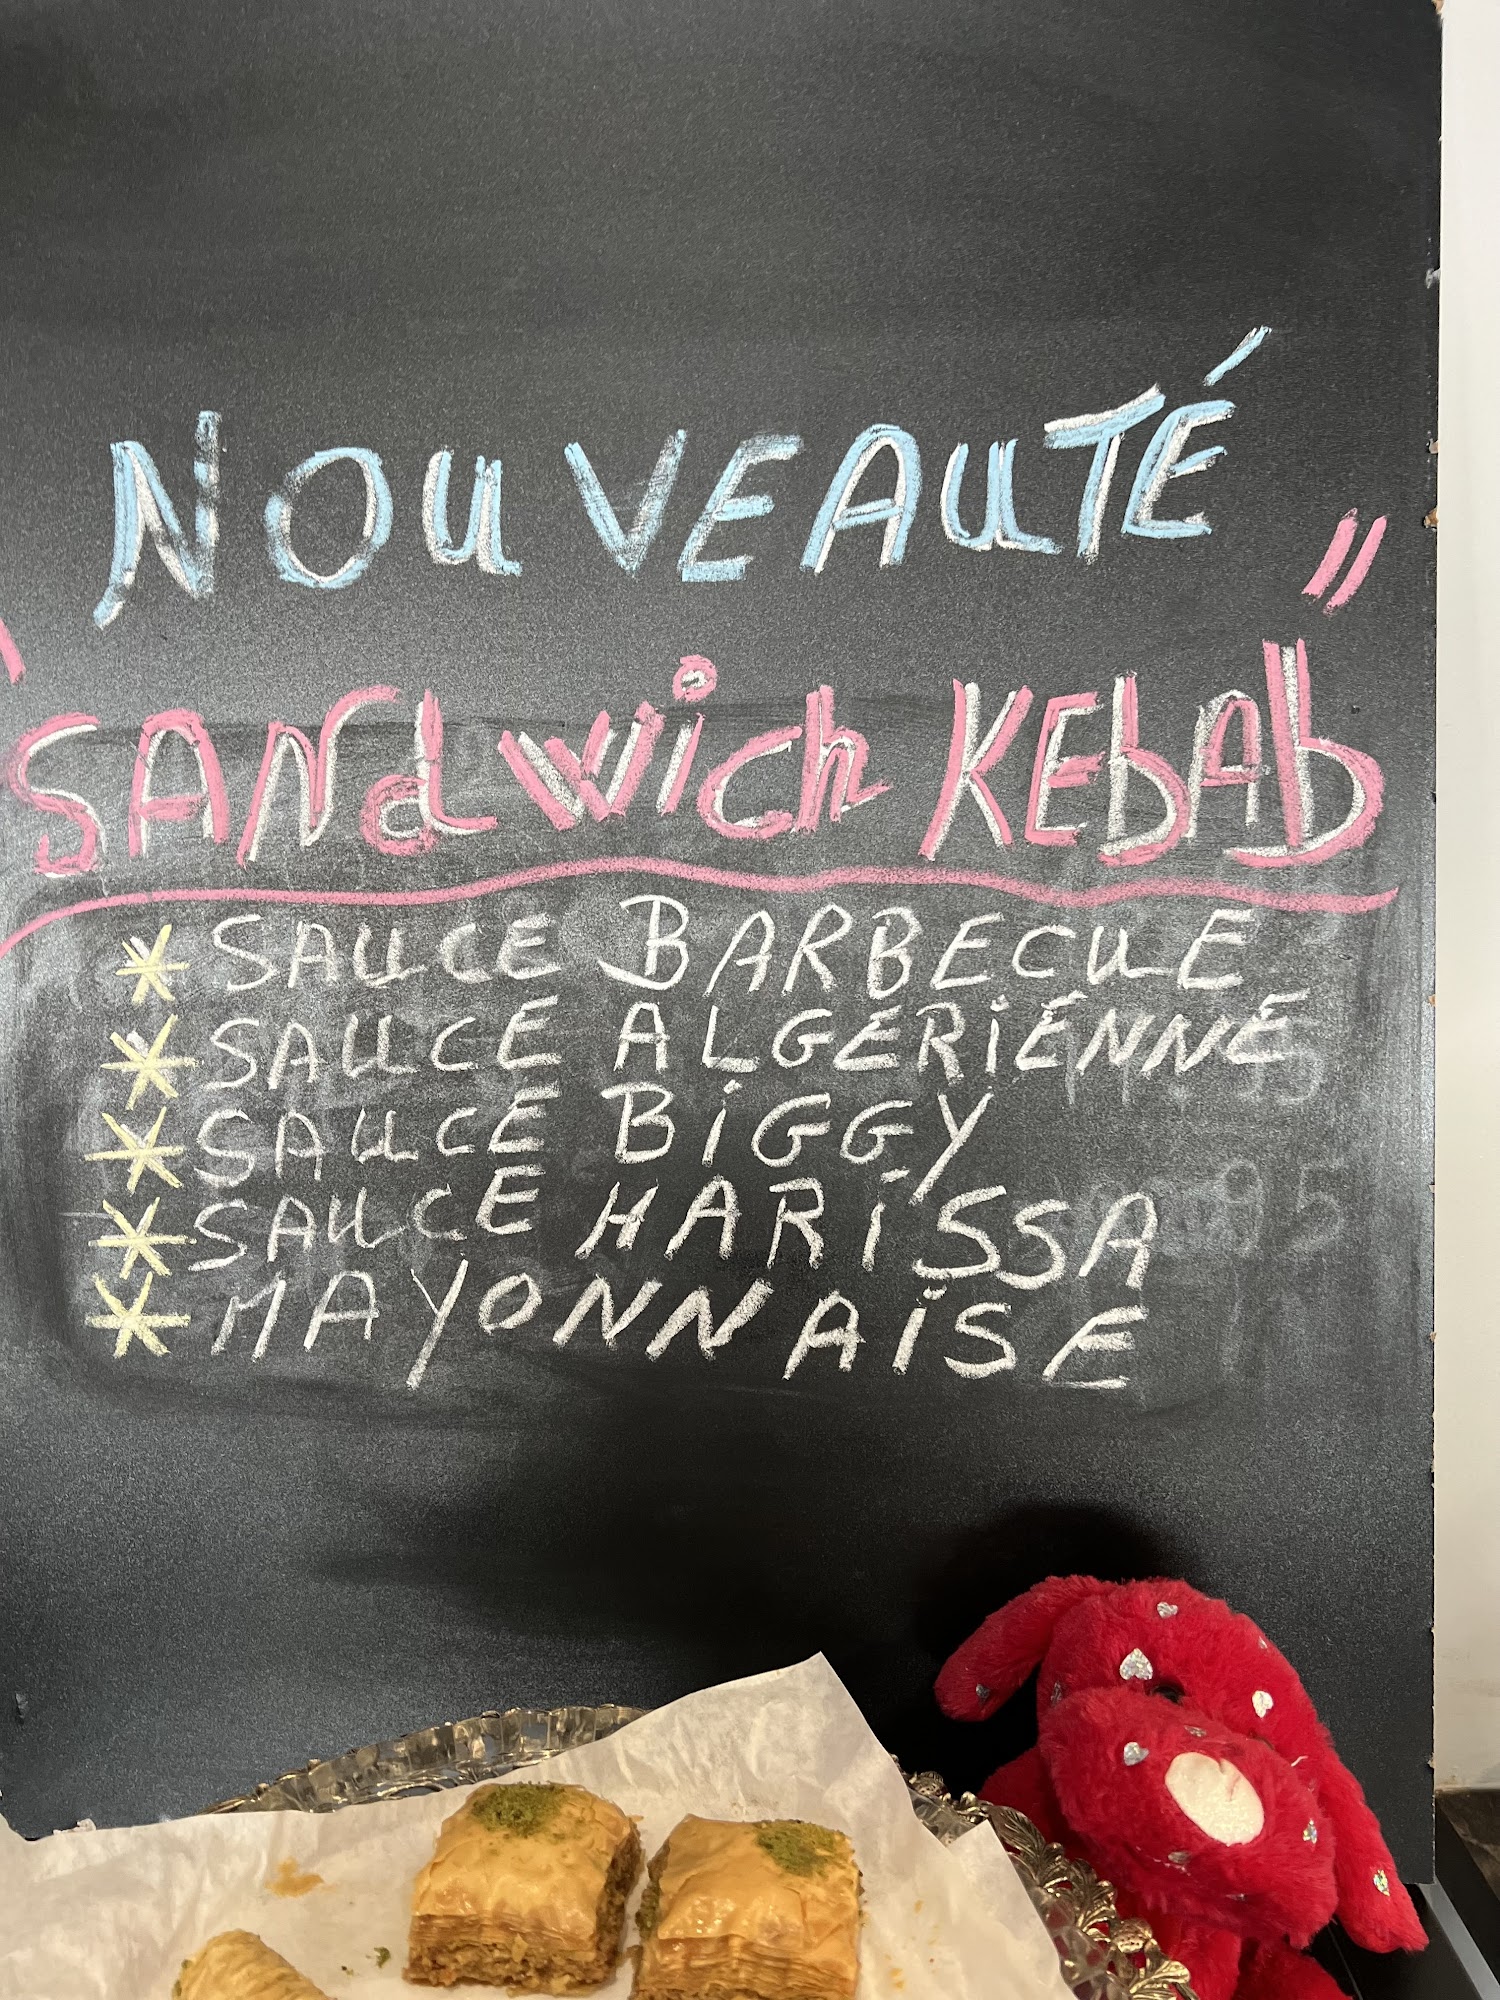 NOUVEAUTÉ
"SANdwich KEbAb"
* SAUCE BARBECUE
* SAUCE ALGERIENNE
* SAUCE BIGGY
* SAUCE HARISSA
* MAYONNAISE